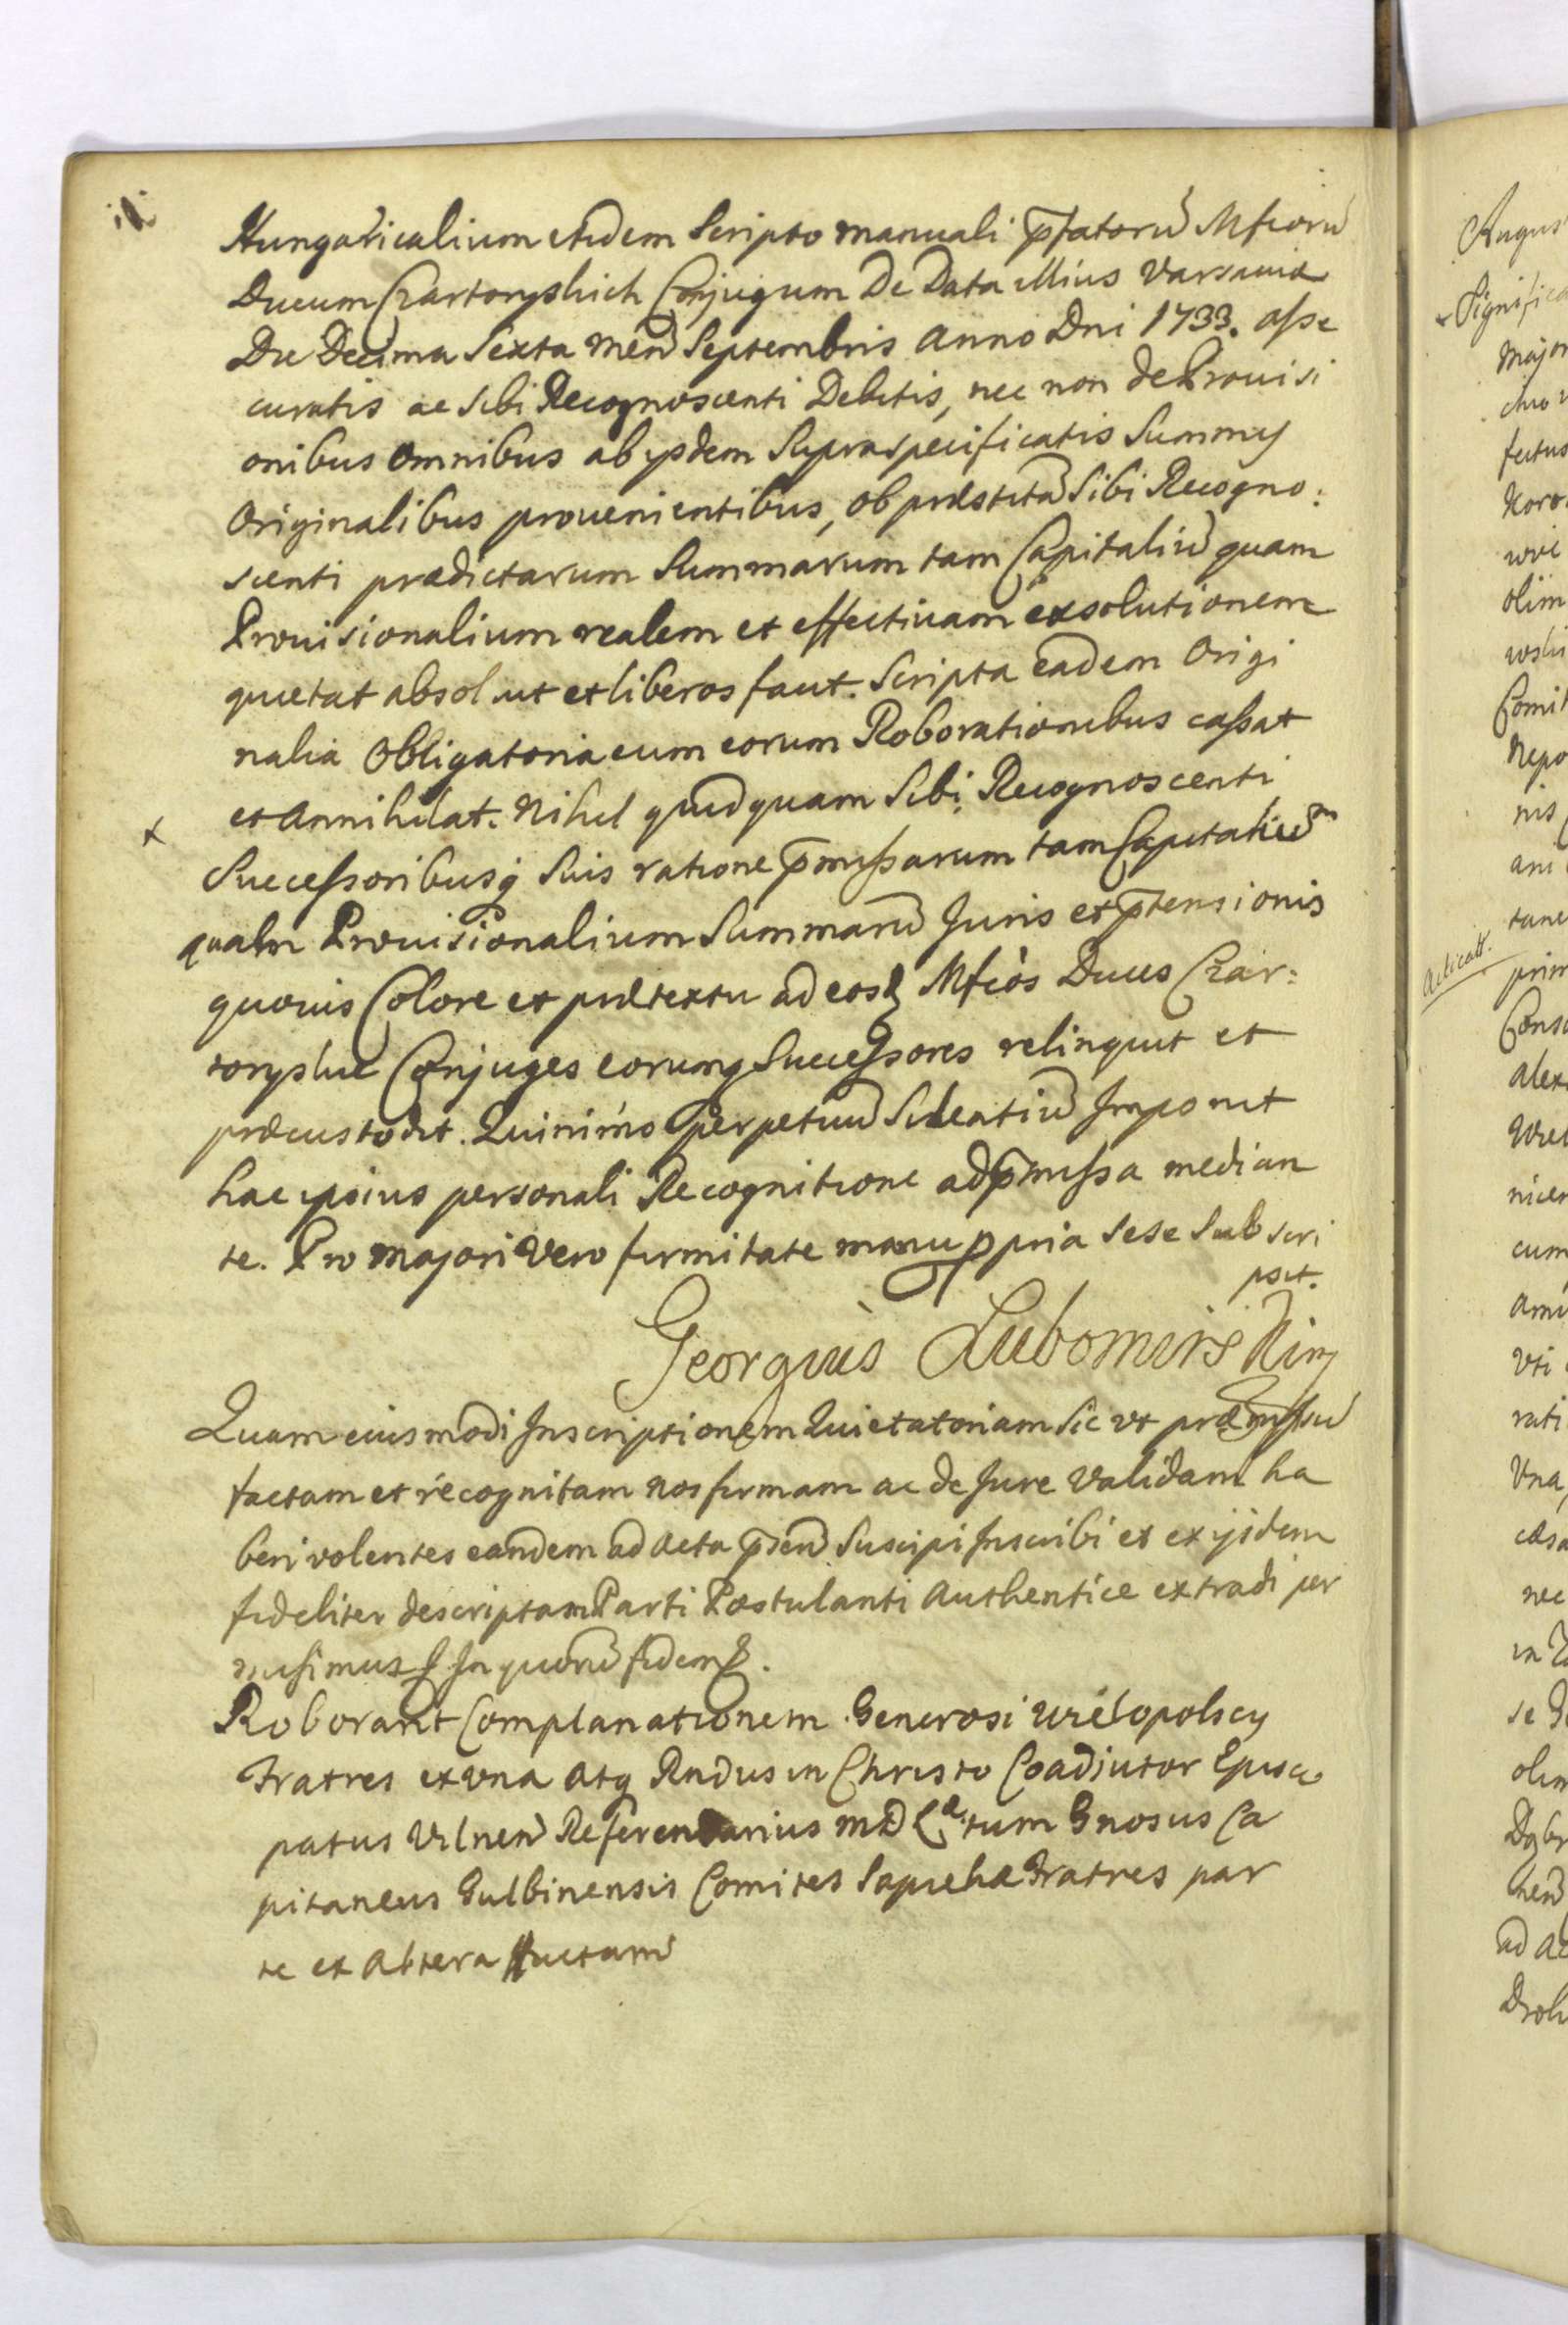 Hungaricalium eisdem Scripto manuali p̄fatorū Mficorū
Ducum Czartoryskich Conjugum De Data illius Varsaviæ
Die Decima Sexta Men̄ Septembris Anno Dni 1733. asse
curatis ac sibi Recognoscenti Debitis, nec non de Provisi
onibus omnibus ab ijsdem Supraspecificatis Summis
Originalibus provenientibus, ob præstitā Sibi Recogno:
scenti prædictarum Summarum tam Capitaliū quam
Provisionalium realem et effectivam exsolutionem
quietat absolvit et liberos facit. Scripta eadem Origi
nalia Obligatoria cum eorum Roborationibus cassat
et Annihilat. Nihil quidquam Sibi Recognoscenti
Successoribusq Suis ratione p̄missarum tam Capitaliū
quam Provisionalium Summarū Juris et p̄tensionis
quovis Colore et prætextu ad eosd Mficos Duces Czar:
toryskie Conjuges eorumq Successores relinquit et
præcustodit. Quinimo perpetuū Silentiū Imponit
hac ipsius personali Recognitione ad p̄missa median
te. Pro majori Vero firmitate manu ppria sese Subscri
psit.
Georgius Lubomirski mp
Quam eiusmodi Inscriptionem Quietatoriam sic vt præmissū
factam et recognitam nos firmam ac de Jure Validam ha
beri volentes eandem ad Acta p̄sen̄ Suscipi Inscribi et ex ijsdem
fideliter descriptam Parti Postulanti Authentice extradi per
misimus In quorū fidem
Roborant Complanationem Generosi Wielopolscy
Fratres ex vna atq Rndus in Christo Coadiutor Episco
patus Vilnen̄ Referendarius M D L tum Gnosus Ca
pitaneus Gulbinensis Comites Sapieha Fratres par
te ex Altera factam
Acticatt.